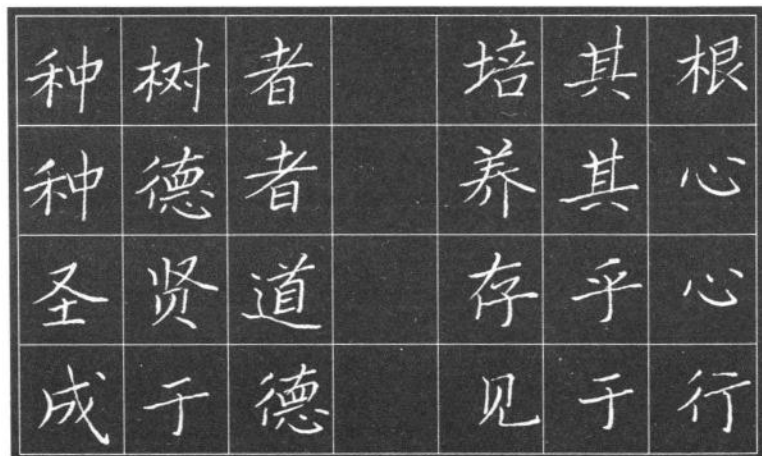 种树者 培其根
种德者 养其心
圣贤道 存乎心
成于德 见于行